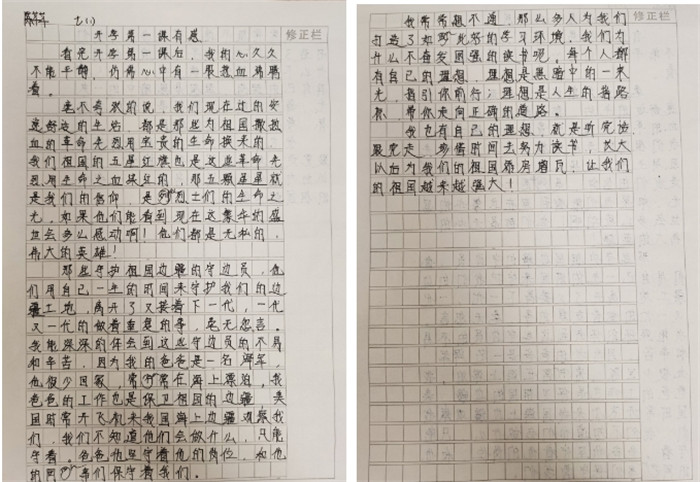 七(1)
修正栏
开学第一课有感
看完开学第一课后，我的心久久
不能平静，仿佛心中有一股热血沸腾
着。
毫不夸张的说，我们现在过的安
逸舒适的生活，都是那些为祖国撒热
血的革命先烈用宝贵的生命换来的，
我们祖国的五星红旗也是这些革命先
烈用生命之血染红的，那五颗星星就
是我们的信仰，是烈士们的生命之
光，如果他们能看到现在这繁华的盛
世会多么感动啊！他们都是无私的，
伟大的英雄！
那些守护祖国边疆的守边员，他
们用自己一生的时间来守护我们的边
疆土地，离开了又接着下一代，一代
又一代的做着重复的事，毫无怨言。
我能深深的体会到这些守边员的不易
和辛苦，因为我的爸爸是一名海军，
他很少回家，常常在海上漂泊，我
爸爸的工作也是保卫祖国的边疆，美
国时常开飞机来我国海上边疆观察我
们，我们不知道他们会做什么，只能
守着。爸爸他坚守着他的岗位，和他
的同事们保守着我们。
修正栏
我常常想不通，那么多人为我们
打造了如此好的学习环境，我们为
什么不奋发图强的读书呢。每个人都
有自己的理想，理想是黑暗中的一束
光，指引你前行；理想是人生的指路
标，带你走向正确的道路。
我也有自己的理想，就是听党话
跟党走，珍惜时间去努力读书，长大
以后为我们的祖国添房增瓦，让我们
的祖国越来越强大！